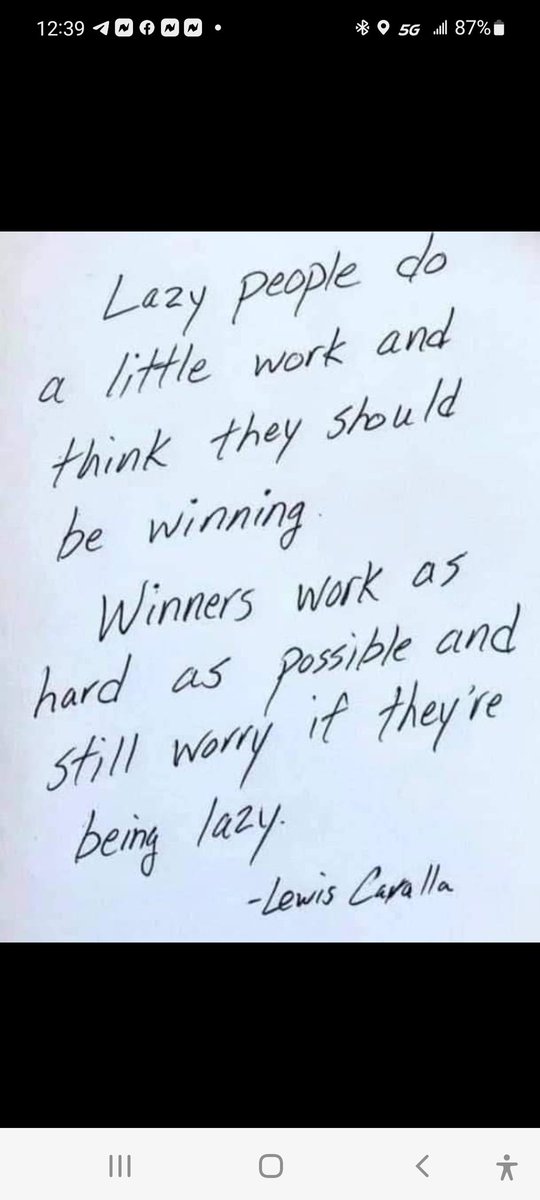 12:39
5G 87%
Lazy people do
a little work and
think they should
be winning.
Winners work as
hard as possible and
still worry if they're
being lazy.
-Lewis Caralla